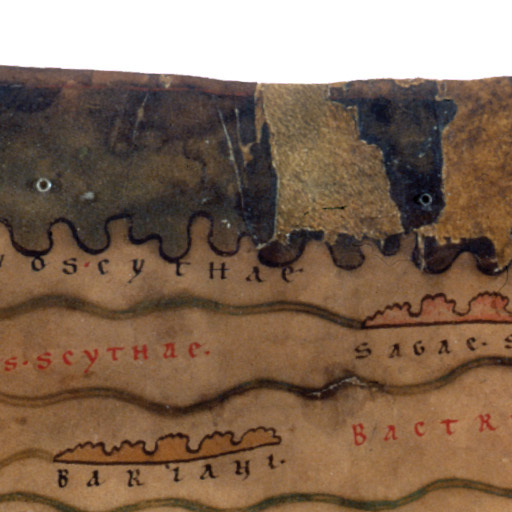 OS·CYTHAE
S·SCYTHAE·
SAGAE·S
BACTR
BARIANI·